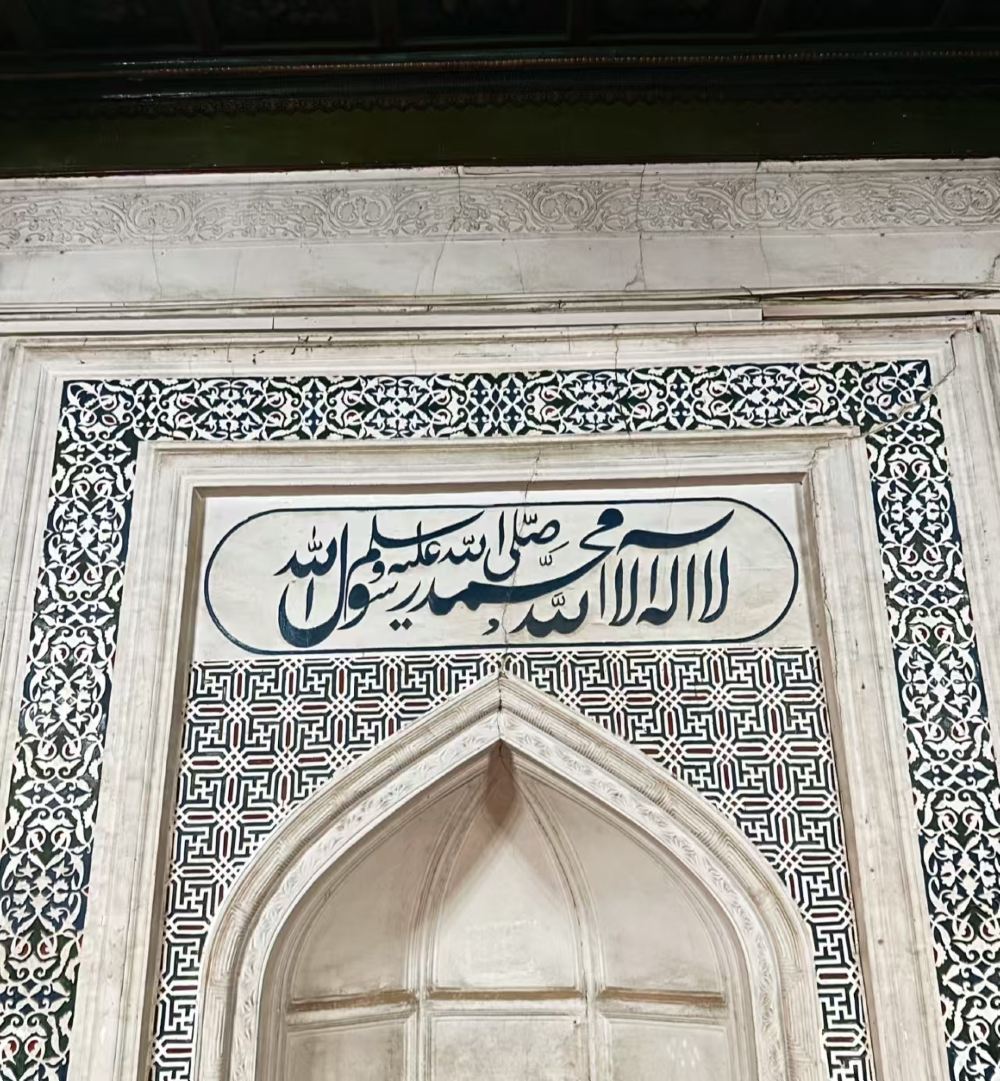 لا اله الا الله محمد صلى الله عليه وسلم رسول الله